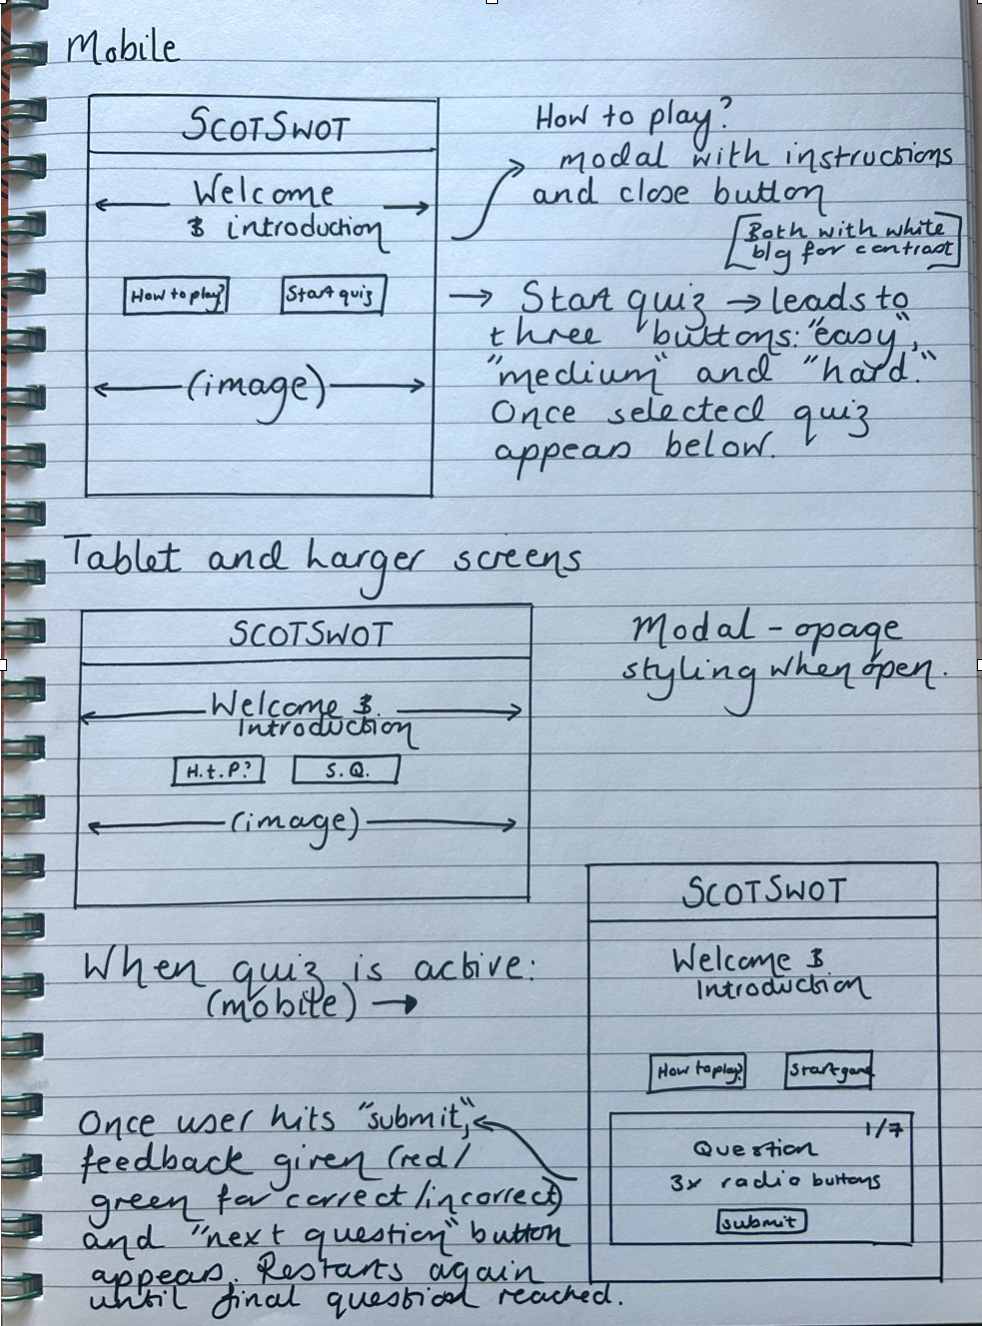 Mobile
SCOTSWOT
Welcome
& introduction
How to play?
Start quiz
(image)
How to play?
modal with instructions
and close button
[Both with white
b/g for contrast]
Start quiz → leads to
three buttons: "easy",
"medium" and "hard."
Once selected quiz
appears below.
Tablet and larger screens
SCOTSWOT
Welcome &
Introduction
H.t.P?
S.Q.
(image)
Modal - opage
styling when open.
When quiz is active:
(mobile) →
SCOTSWOT
Welcome &
Introduction
How to play?
Start game
1/7
Question
3x radio buttons
submit
Once user hits "submit",
feedback given (red/
green for correct/incorrect)
and "next question" button
appears. Restarts again
until final question reached.